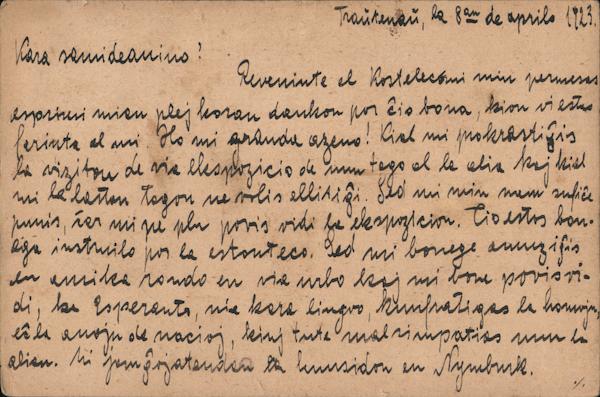 Traŭtenaŭ, la 8an de aprilo 1923.
Kara samideanino!
Reveninte el Kostelec mi min permesas
esprimi mian plej koran dankon por ĉio bona, kion vi estas
farinta al mi. Ho mi granda azeno! Kial mi prokrastiĝis
la viziton de via Ekspozicio de unu tago al la alia kaj kial
mi la lastan tagon ne volis ellitiĝi. Sed mi min nem sufiĉe
punis, ĉar mi ne plu povis vidi la ekspozicion. Tio estos bon-
ega instruilo por la estonteco. Sed mi bonege amuziĝis
en amika rondo en via urbo kaj mi bone povis vi-
di, ke Esperanto, nia kara lingvo, kunfratigas la homojn,
eĉ la anojn de nacioj, kiuj tute malsimpatias unu la
alian. Mi jam ĝojatendas la kunsidon en Nymburk.